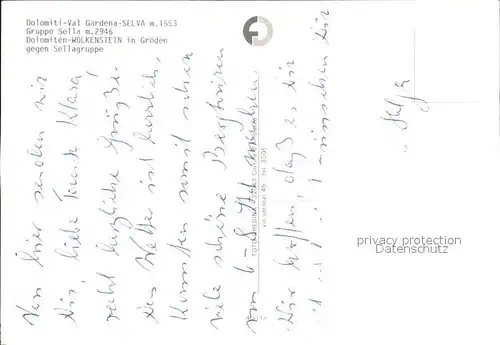 Dolomiti-Val Gardena-SELVA m.1553
Gruppo Sella m.2946
Dolomiten-WOLKENSTEIN in Gröden
gegen Sellagruppe
Von hier senden wir
Dir, liebe Tante Klara!
recht herzliche Grüße.
Das Wetter ist herrlich.
Konnten somit schon
viele schöne Bergtouren
von 6-8 Std machen.
Wir hoffen, daß es Dir
wünschen Dir
Helga
privacy protection
Datenschutz